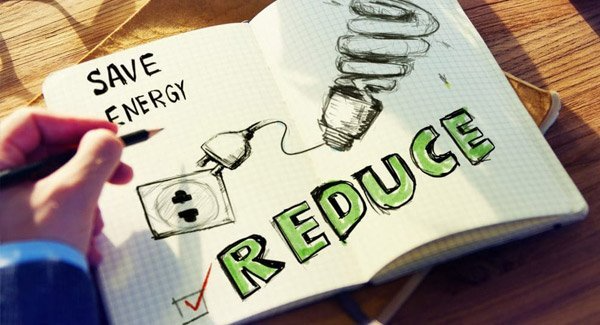 SAVE
ENERGY
REDUCE